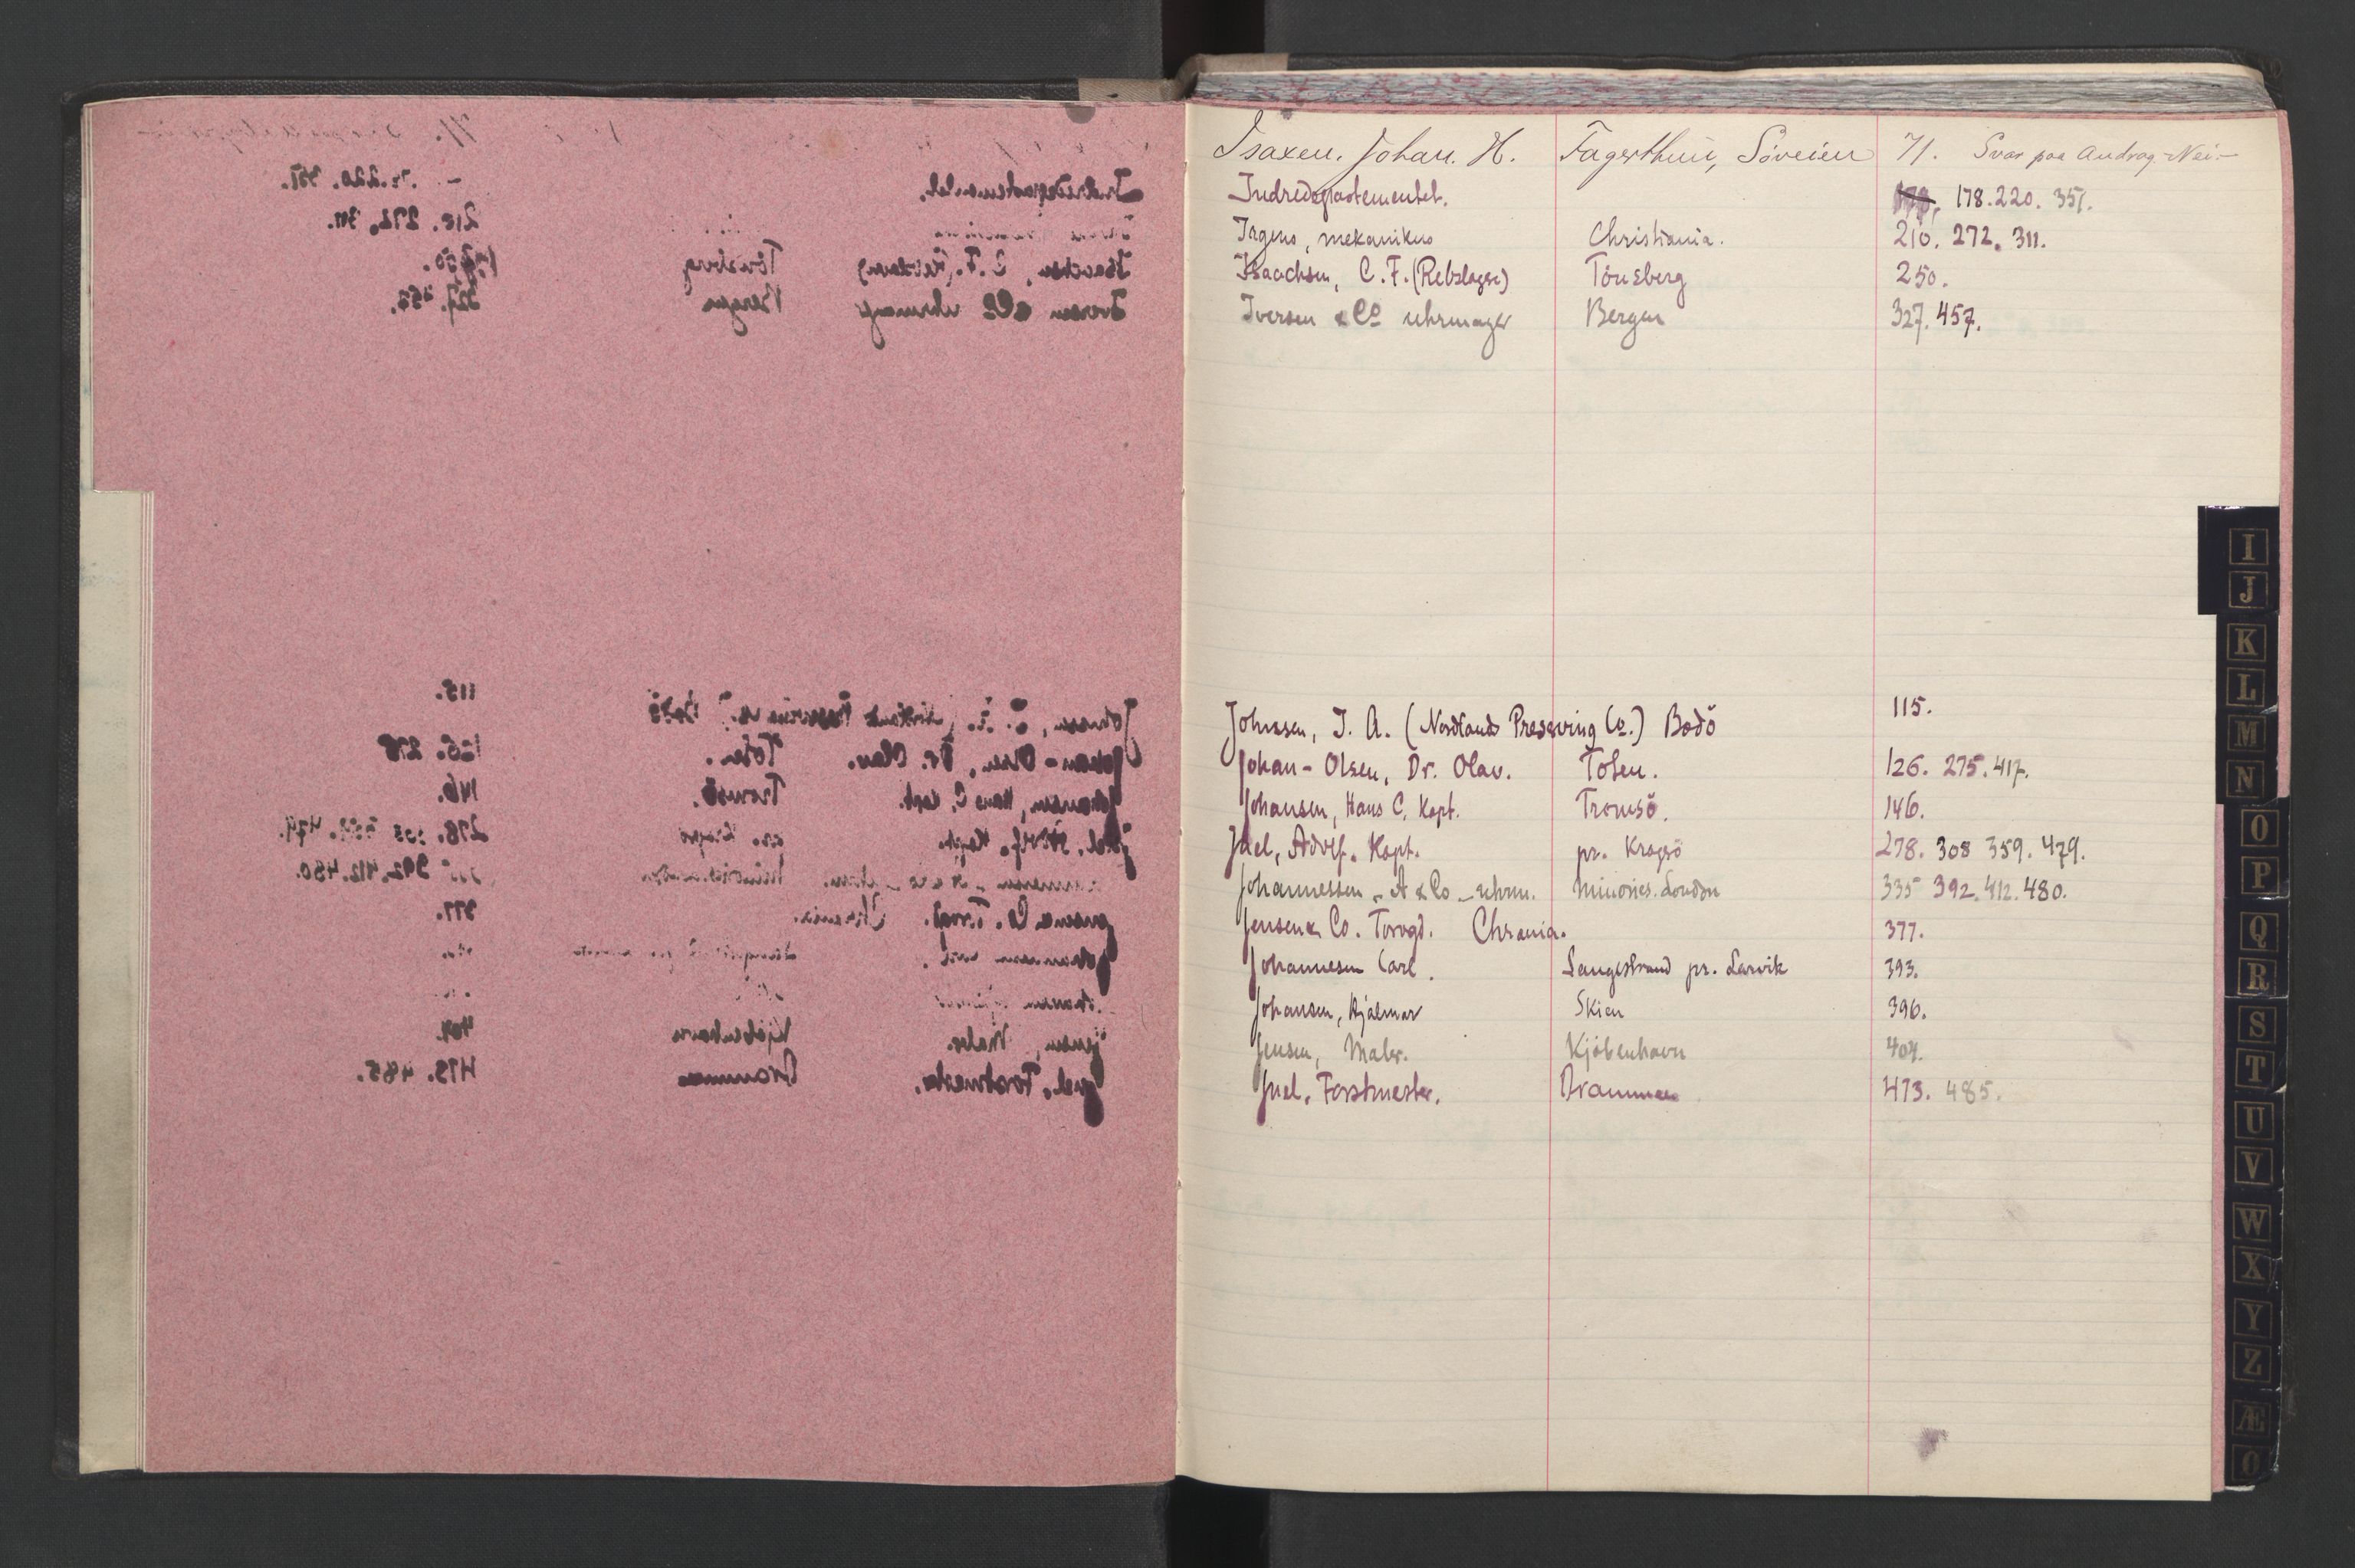 Isaxen, Johan. H. Fagerthun, Söveien 71. Svar paa Andrag. Nei.
Indredepartementet. 178. 220. 351.
mekanikus Christiania. 210. 272. 311.
Isaachsen, C. F. (Rebslager) Tönsberg 250.
Iversen & Co uhrmager Bergen 327. 457.
Johnsen, J. A. (Nordlands Preserving Co.) Bodö 115.
Johan-Olsen, Dr. Olav. Toten. 126. 275. 417.
Johansen, Hans C, Kapt. Tromsö. 146.
Juel, Adolf. Kapt. pr. Kragerö 278. 308 359. 479.
Johannessen, A & Co - uhrm. Minories. London 335 392. 412. 480.
Jensen & Co. Torvgd. Chrania. 377.
Johannesen Carl. Langestrand pr. Larvik 393.
Johansen, Hjalmar Skien 396.
Jensen, Maler. Kjöbenhavn 404.
Juel, Forstmester. Drammen 473. 485.
I
J
K
L
M
N
O
P
Q
R
S
T
U
V
W
X
Y
Z
Æ
Ø